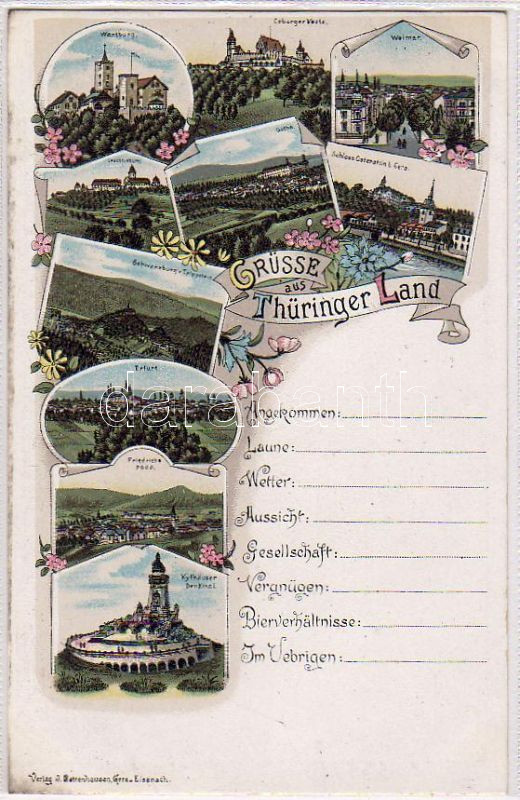 Wartburg.
Coburger Veste.
Weimar.
Gotha.
Schloss Osterstein b. Gera.
Schwarzburg v. Trippstein
GRÜSSE
aus
Thüringer Land
Erfurt.
Friedrichs
roda.
Kyffhäuser
Denkmal.
Angekommen:
Laune:
Wetter:
Aussicht:
Gesellschaft:
Vergnügen:
Bierverhältnisse:
Im Uebrigen:
Verlag J. Bettenhausen, Gera-Eisenach.
darabanth